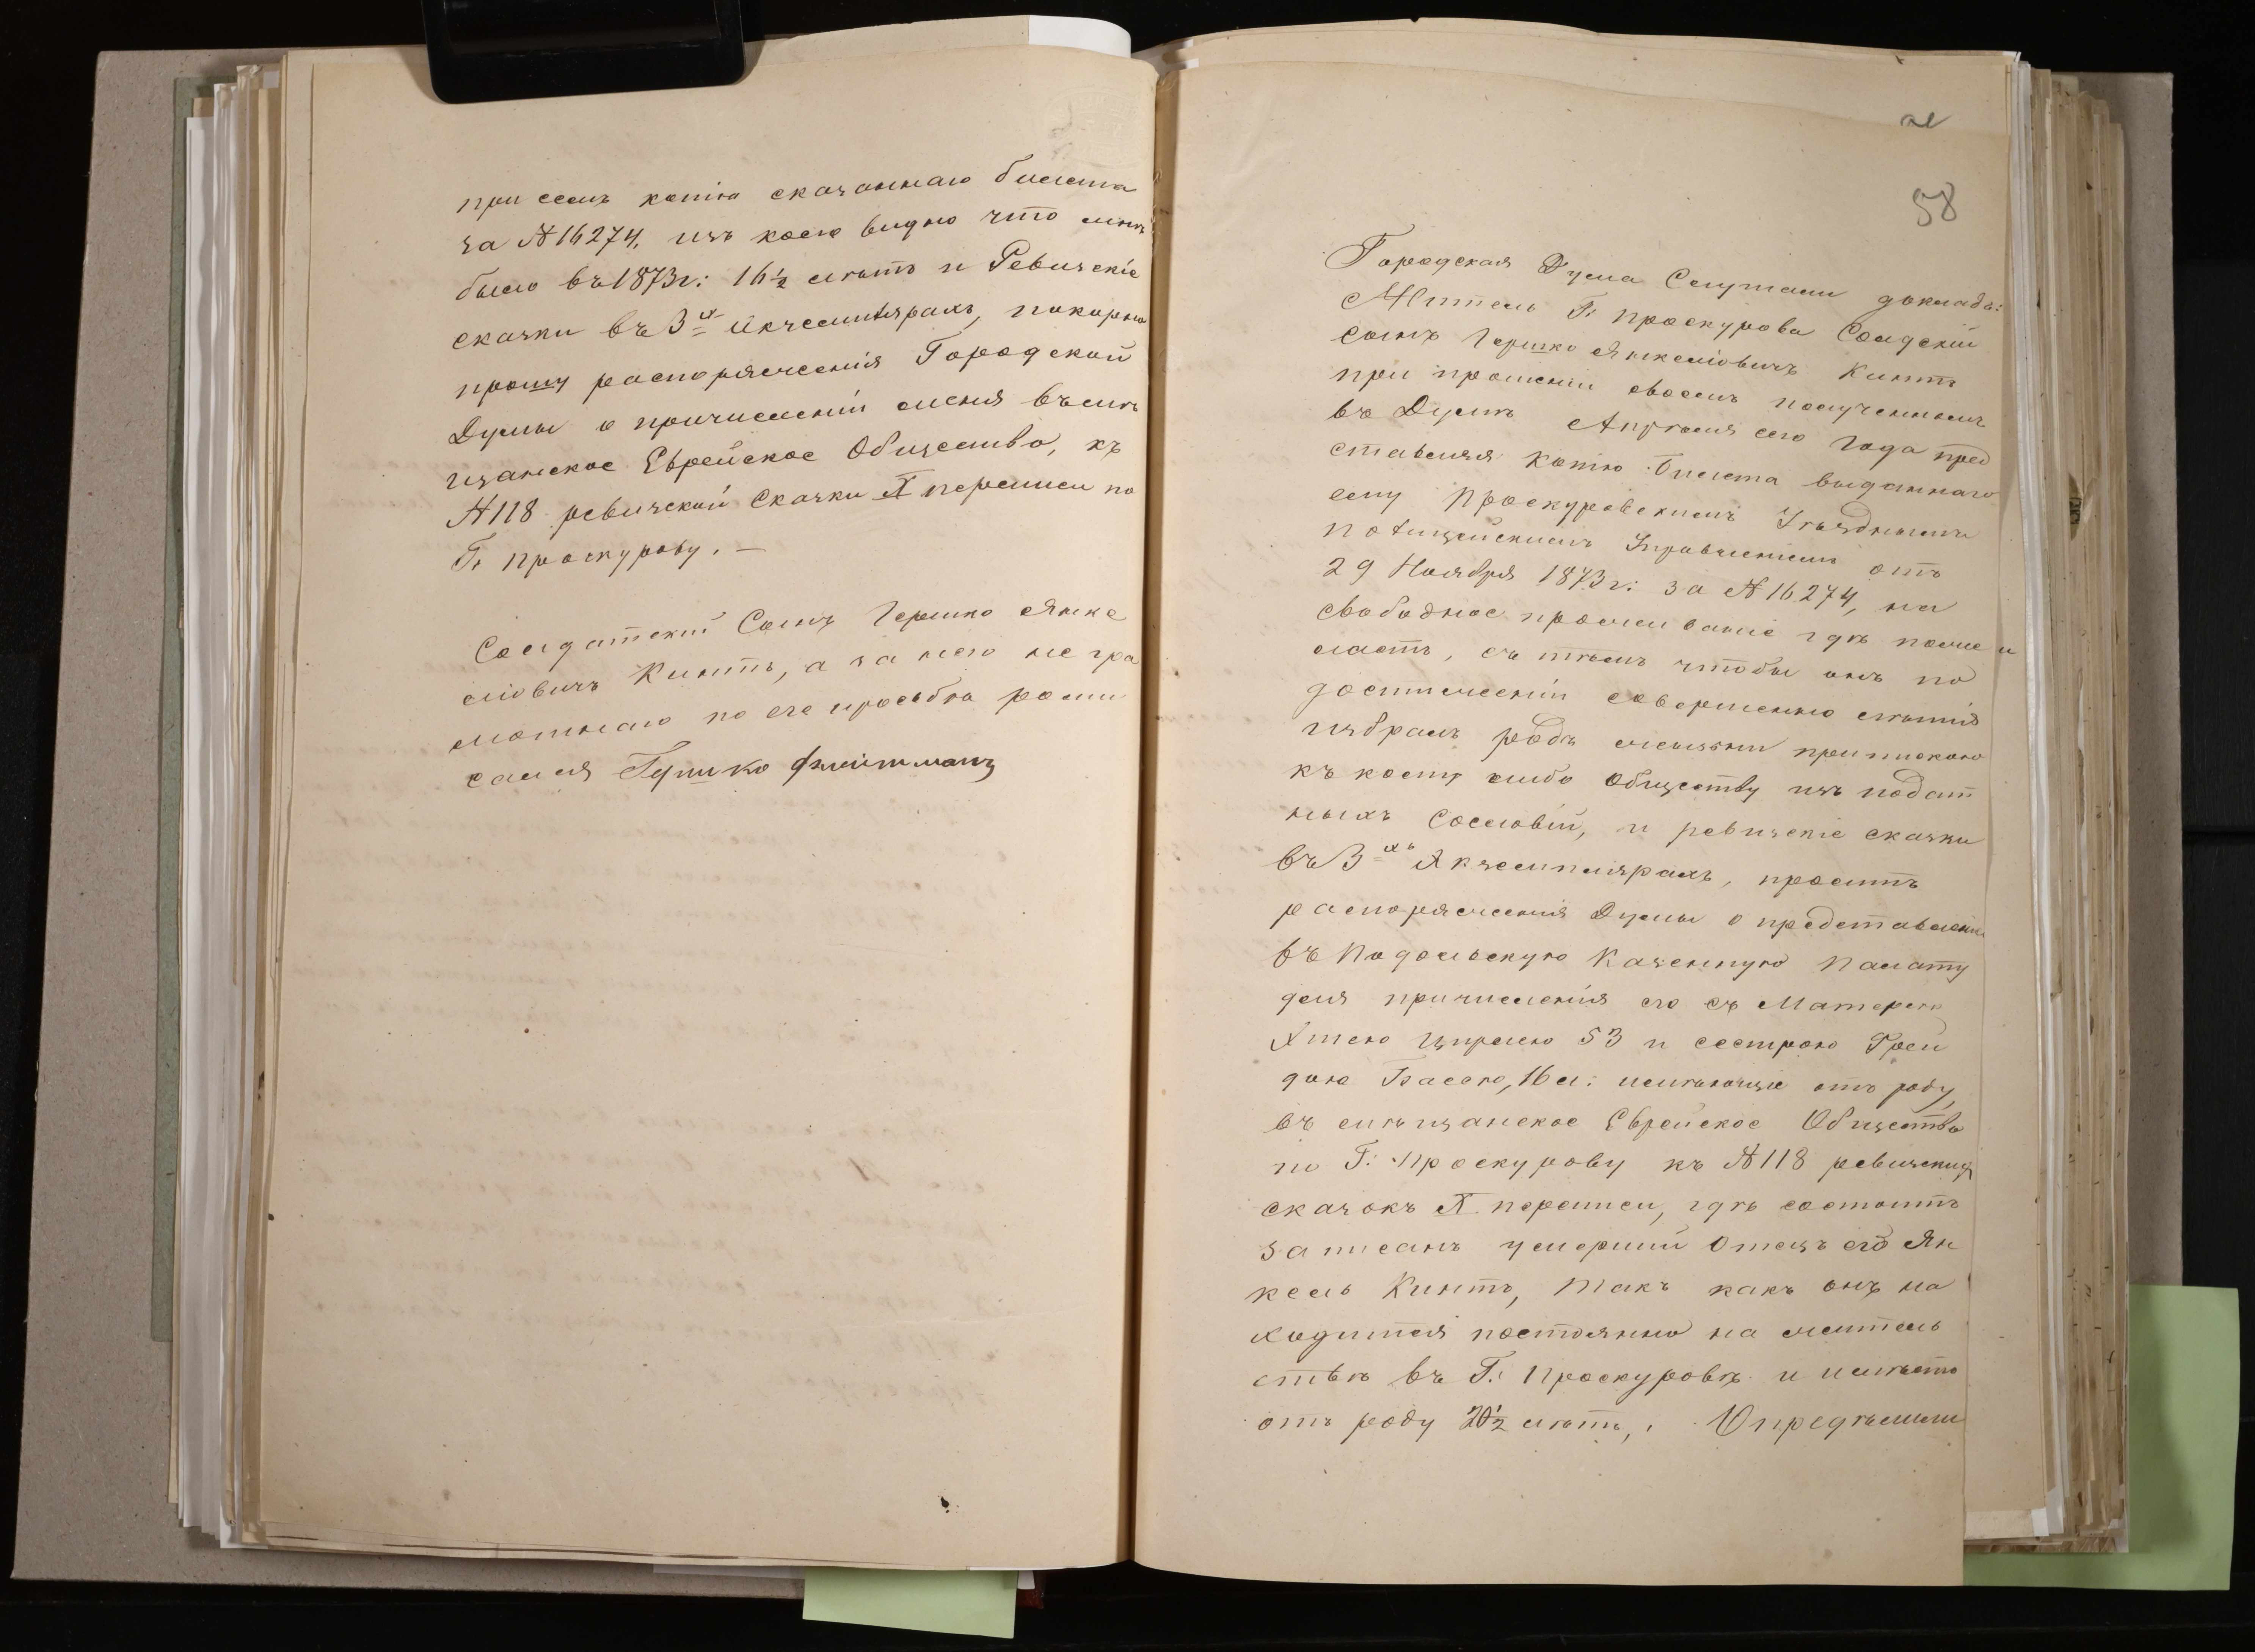 при семъ копію сказаннаго билета
за № 16274, изъ коего видно что мнѣ
было въ 1873 г: 16 ½ лѣтъ и Ревизскіе
сказки въ 3х екземплярахъ, покорно
прошу распоряженія Городской
Думы о причисленіи меня въ мѣ
щанское Еврейское Общество, къ
№ 118 ревизской сказки X переписи по
Г. Проскурову. —
Солдатскій Сынъ Гершко Янке
ліовичъ Кинтъ, а за него не гра
мотнаго по его просьбѣ роспи
сался
58
Городская Дума Слушали докладъ:
Житель Г. Проскурова Солдскій
сынъ Гершко Янкеліовичъ Кинтъ
при прошеніи своемъ полученномъ
въ Думѣ Апрѣля сего года пред
ставляя копію билета выданнаго
ему Проскуровскимъ Уѣзднымъ
Полицейскимъ Управленіемъ отъ
29 Ноября 1873 г: за № 16274, на
свободное проживаніе гдѣ поже
лаетъ, съ тѣмъ чтобы онъ по
достиженіи совершенно лѣтія
избралъ родъ жизни припискою
къ коему либо Обществу изъ подат
ныхъ Сословій, и ревизскіе сказки
въ 3хъ Якземплярахъ, проситъ
распоряженія Думы о представленіи
въ Подольскую Казенную Палату
для причисленія его съ Матерею
Ципрею 53 и сестрою Фрей
дою Басею, 16 л: имѣющіе отъ роду,
въ мѣщанское Еврейское Общество
по Г: Проскурову къ № 118 ревизскихъ
сказокъ X переписи, гдѣ состоитъ
записанъ умершій Отецъ его Ян
кель Кинтъ, Такъ какъ онъ на
ходится постоянно на житель
ствѣ въ Г: Проскуровѣ и имѣетъ
отъ роду 20 ½ лѣтъ, Опредѣлили